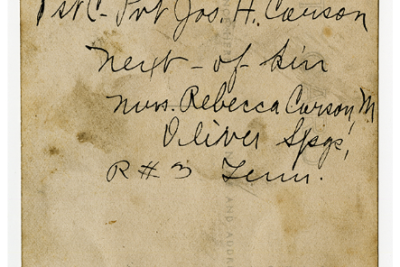 1st C - Pvt Jos. H. Carson
Next - of - kin
Mrs. Rebecca Carson, M
Oliver Spgs,
R # 3 Tenn.